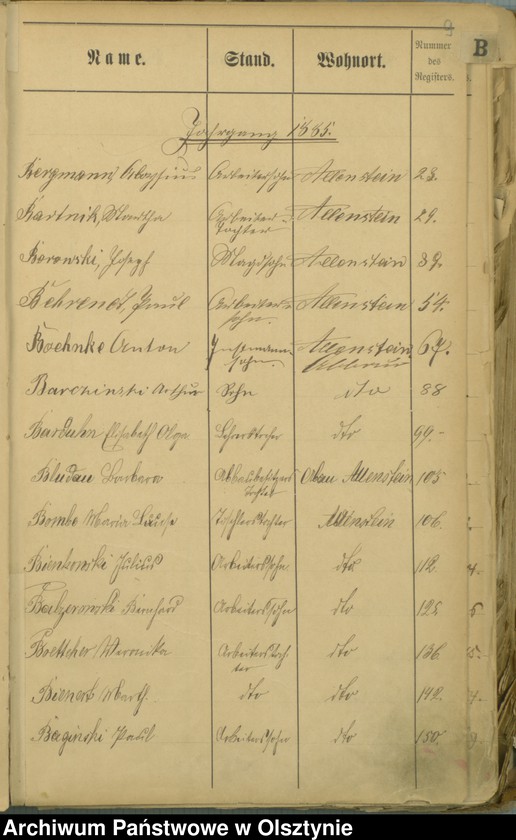 9
B
Name. Stand. Wohnort. Nummer des Registers.
Jahrgang 1885.
Bergmann, Aloysius Arbeitersohn Allenstein 23.
Bartnik, Martha Arbeiter-tochter Allenstein 29.
Borowski, Joseph Magdsohn Allenstein 39.
Behrendt, Paul Arbeiter-sohn. Allenstein 54.
Boehnke Anton Instmann-sohn. Allenstein 67.
Barczinski Arthur Sohn dto 88
Elisabeth Olga dto 99.
Bludau Barbara Abbaubesitzers tochter Abbau Allenstein 105
Bombe Maria Tischlerstochter Allenstein 106.
Bienkowski Julius Arbeiterssohn dto 112
4.
Bernhard Arbeiterssohn dto 125
5
Boettcher Weronika Arbeiterstochter dto 136
5.
Bienert Marth. dto dto 142
7.
Baginski Paul Arbeitersohn dto 150.
9.
Archiwum Państwowe w Olsztynie